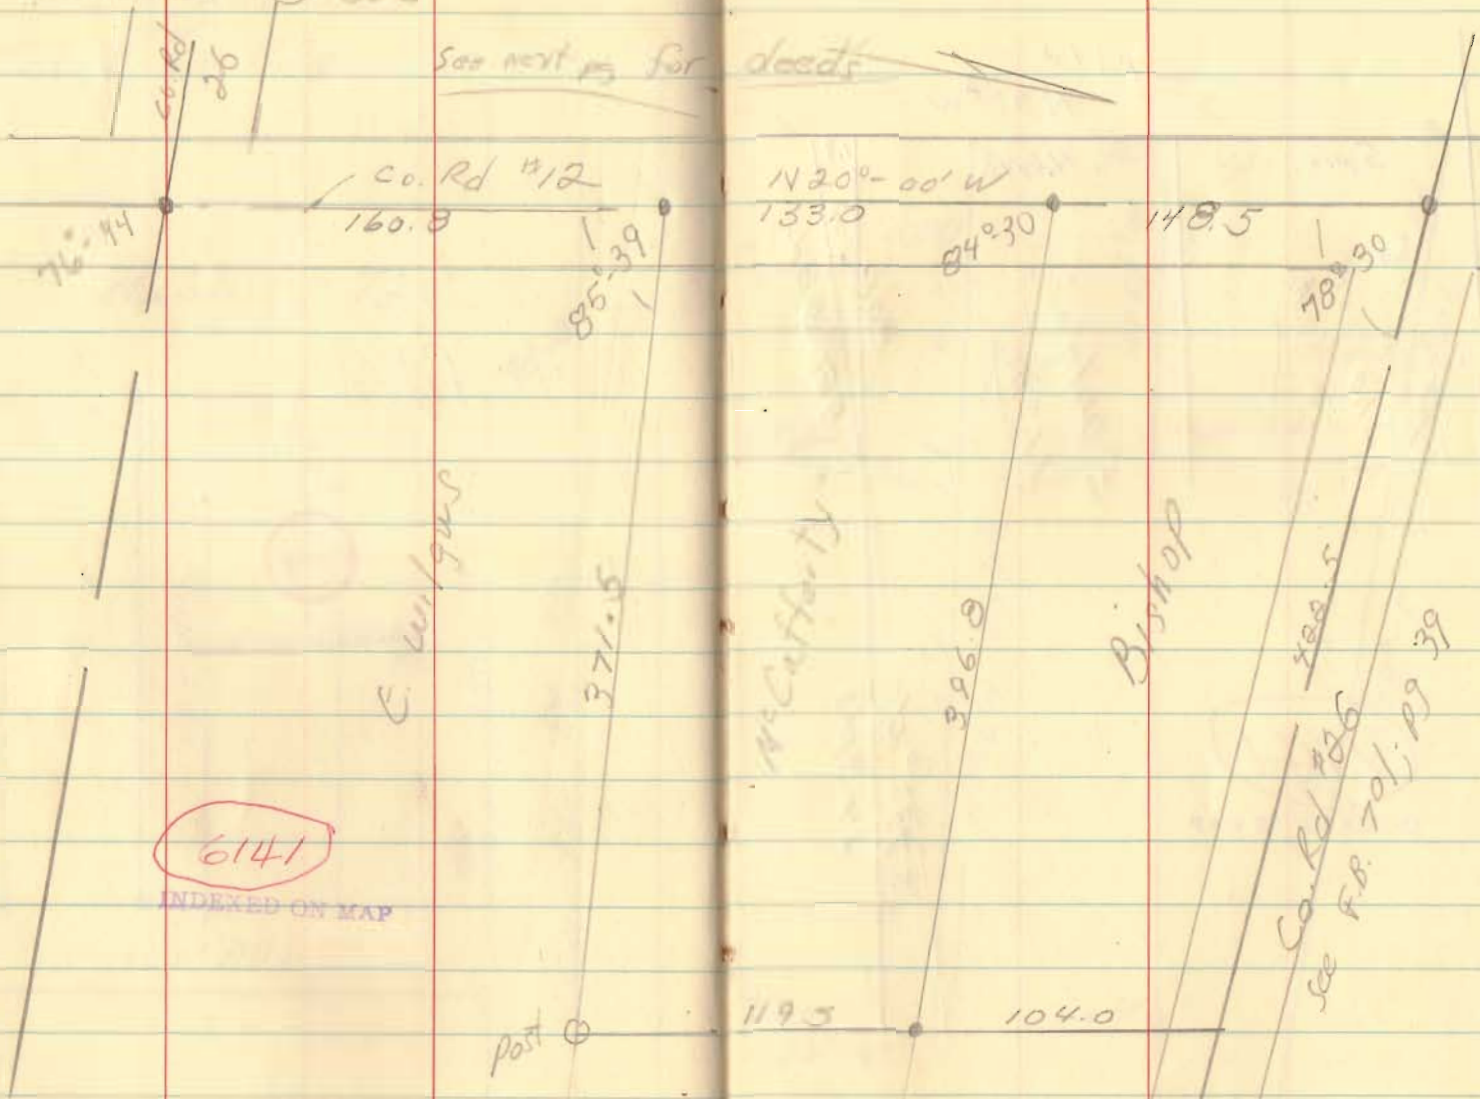 Co. Rd
26
See next pg for deeds
Co. Rd #12
160.8
N 20°-00' W
133.0
148.5
76°-44
85°-39
84°-30
78°-30
C. Wilgus
371.5
McCafferty
396.8
Bishop
422.5
Co. Rd #26
see F.B. 701; pg 39
6141
INDEXED ON MAP
post
119.5
104.0